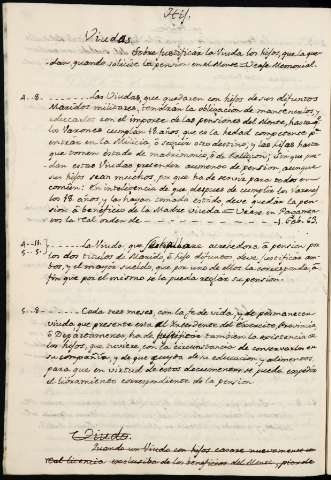 Hij.
Viudas.
Sobre justificar la Viuda los hijos, que la pue-
dan, quando solicite la pension en el Monte = Vease Memorial.
4..8. Las Viudas, que quedaren con hijos de sus difuntos
Maridos militares, tendrán la obligacion de mantenerlos, y
educarlos con el importe de las pensiones del Monte, hasta q.e
los Varones cumplan 18 años, que es la hedad competente p.a
entrar en la Milicia, ò seguir otro destino, y las hijas hasta
que tomen estado de matrimonio, ò de Religion; sin que pue-
dan estas Viudas pretender aumento de pension, aunque
sus hijos sean muchos, por que ha de servir para todos en
comun: En inteligencia de que despues de cumplir los Varones
los 18 años, y las hayan tomado estado, debe quedar la pen-
sion à beneficio de la Madre viuda = Vease en Reglamen-
tos la Real orden de 1. Feb. 63.
4..11.
5..5. La Viuda, que justificare acrehedora à pension por
los dos titulos de Marido, è hijo difuntos, debe justificar am-
bos, y el mayor sueldo, que por uno de ellos la corresponda, à
fin que por el mismo se la pueda reglar su pension.
5..8. Cada tres meses, con la fe de vida, y de permanecer
viuda que presente esta al Intendente del Exercito, Provincia
ò Departamento, ha de justificar tambien la existencia de
los hijos, que tuviere, con la circunstancia de conservarlos en
su compañia, y de que cuyda de su educacion, y alimentos
para que en virtud de estos documentos se pueda expedir
el libramiento correspondiente de la pension.
Viudo.
Quando un Viudo con hijos casare nuevamente sin
Real licencia excluida de los beneficios del Monte, pierde